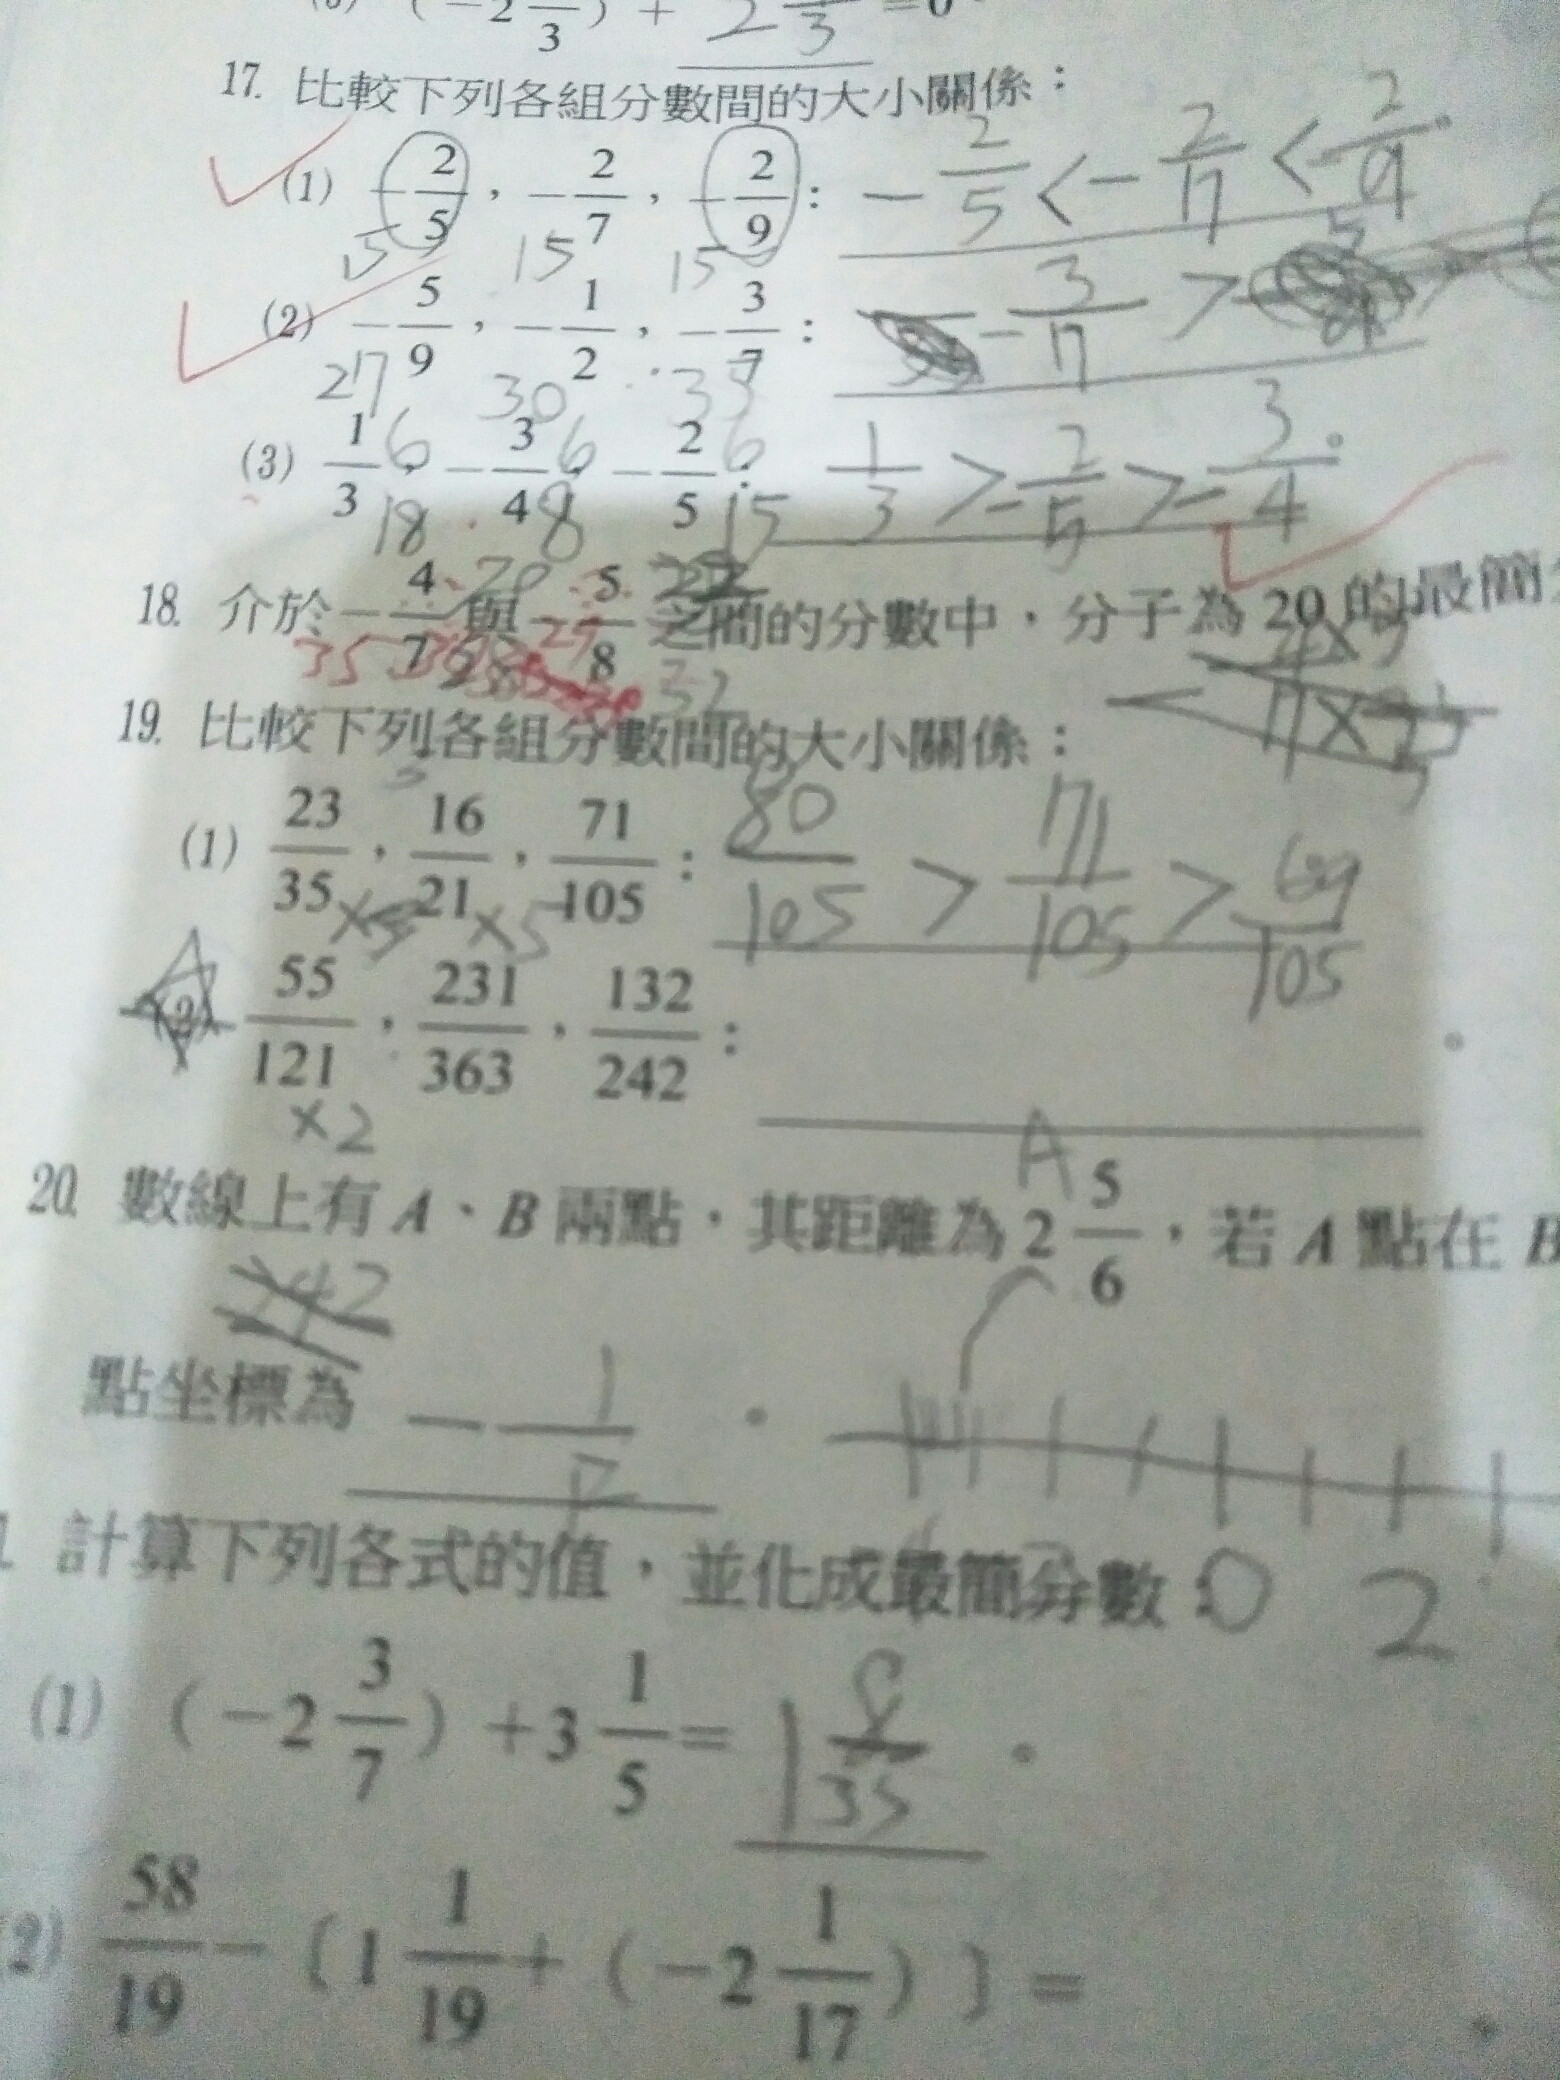 (-2 2/3) + 2 2/3 = 0
17. 比較下列各組分數間的大小關係：
(1) -2/5，-2/7，-2/9： -2/5 < -2/7 < -2/9。
15 15 15
(2) -5/9，-1/2，-3/7： -3/7 >
27 30 35
(3) 1/3，-3/4，-2/5： 1/3 > -2/5 > -3/4。
6 6 6
18 8 15
18. 介於 -4/7 與 -5/8 之間的分數中，分子為 20 的最簡
20
35 28 32
19. 比較下列各組分數間的大小關係：
(1) 23/35，16/21，71/105： 80/105 > 71/105 > 69/105
×5
(2) 55/121，231/363，132/242： 。
×2
A
20. 數線上有 A、B 兩點，其距離為 2 5/6，若 A 點在 B
242
點坐標為 。
0 2
計算下列各式的值，並化成最簡分數：
(1) (-2 3/7) + 3 1/5 = 1 8/35 。
(2) 58/19 - [1 1/19 + (-2 1/17)] = 。